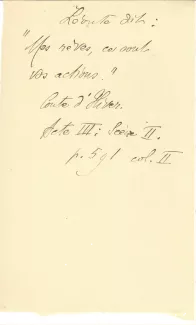 Léonte dit :
"Mes rêves, ce sont
vos actions."
Conte d'Hiver.
Acte III ; Scène II.
p. 591 col. II